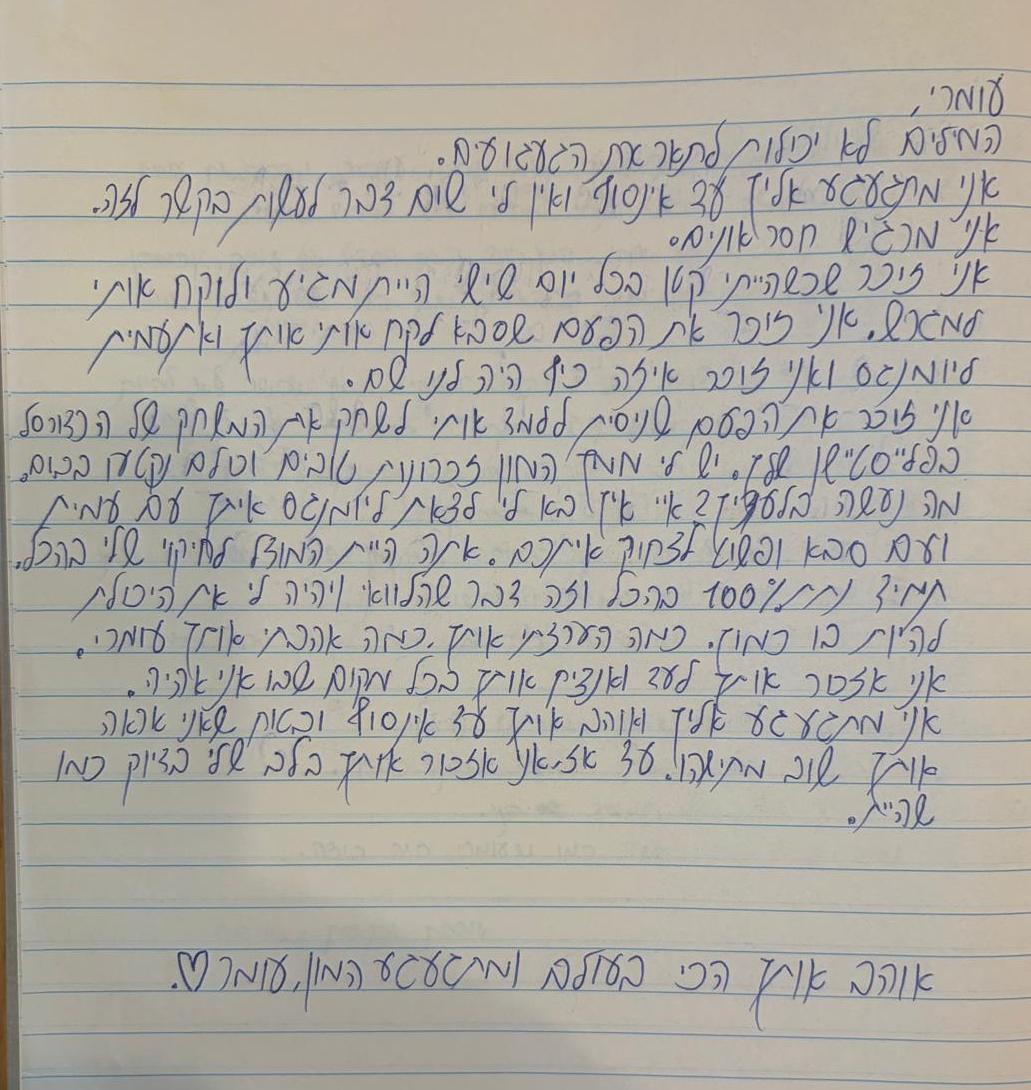 עומרי,
המילים לא יכולות לתאר את הגעגועים.
אני מתגעגע אליך עד אינסוף ואין לי שום דבר לעשות בקשר לזה.
אני מרגיש חסר אונים.
אני זוכר שכשהייתי קטן בכל יום שישי היית מגיע ולוקח אותי
למגרש. אני זוכר את הפעם שסבא לקח אותי אותך ואת עמית
ליומנגס ואני זוכר איזה כיף היה לנו שם.
אני זוכר את הפעם שניסית ללמד אותי לשחק את המשחק של הכדורסל
בפלייסטיישן שלך. יש לי ממך המון זכרונות טובים וכולם נקטעו בבום.
מה נעשה בלעדיך? איי איך בא לי לצאת ליומנגס איתך עם עמית
ועם סבא ופשוט לצחוק איתכם. אתה היית המודל לחיקוי שלי בהכל.
תמיד נתת 100% בהכל וזה דבר שהלוואי ויהיה לי את היכולת
להיות בו כמוך. כמה הערצתי אותך. כמה אהבתי אותך עומרי.
אני אזכור אותך לעד ואנציח אותך בכל מקום שבו אני אהיה.
אני מתגעגע אליך ואוהב אותך עד אינסוף ובטוח שאני אראה
אותך שוב מתישהו. עד אז אני אזכור אותך בלב שלי בדיוק כמו
שהיית.
אוהב אותך הכי בעולם ומתגעגע המון, עומר ♡.